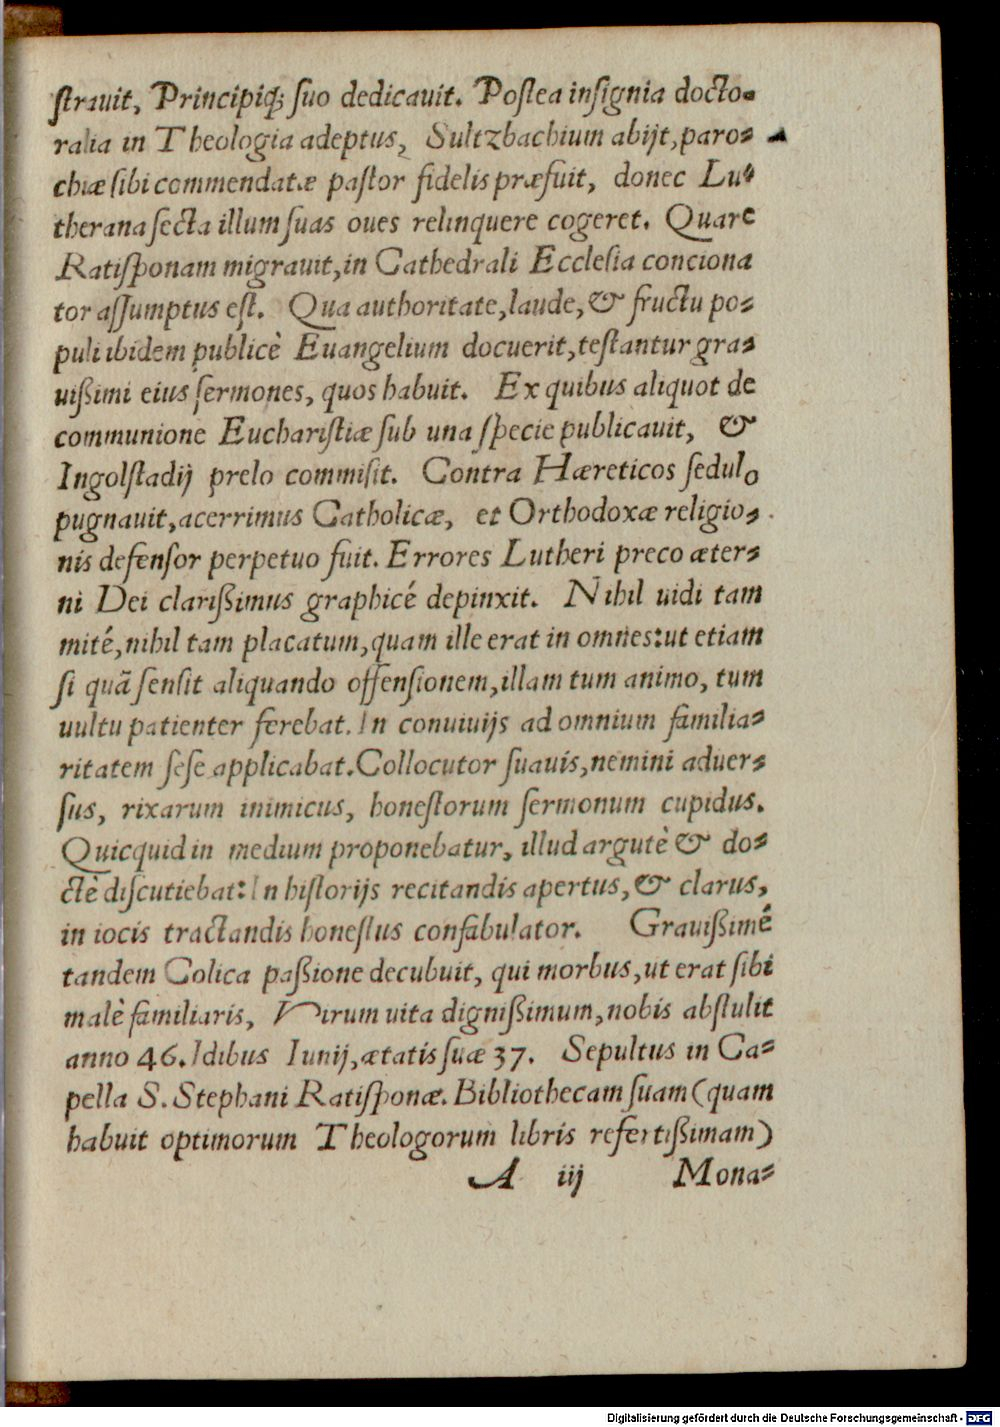 ſtrauit, Principiq́; ſuo dedicauit. Poſtea inſignia docto-
ralia in Theologia adeptus, Sultzbachium abijt, paro-
chiæ ſibi commendatæ paſtor fidelis præfuit, donec Lu-
therana ſecta illum ſuas oues relinquere cogeret. Quare
Ratiſponam migrauit, in Cathedrali Eccleſia conciona
tor aſſumptus eſt. Qua authoritate, laude, & fructu po-
puli ibidem publicè Euangelium docuerit, teſtantur gra-
uißimi eius ſermones, quos habuit. Ex quibus aliquot de
communione Euchariſtiæ ſub una ſpecie publicauit, &
Ingolſtadij prelo commiſit. Contra Hæreticos ſedulo
pugnauit, acerrimus Catholicæ, et Orthodoxæ religio-
nis defenſor perpetuo fuit. Errores Lutheri preco æter-
ni Dei clarißimus graphicé depinxit. Nihil uidi tam
mité, nihil tam placatum, quam ille erat in omnes: ut etiam
ſi quā ſenſit aliquando offenſionem, illam tum animo, tum
uultu patienter ferebat. In conuiuijs ad omnium familia-
ritatem ſeſe applicabat. Collocutor ſuauis, nemini aduer-
ſus, rixarum inimicus, honeſtorum ſermonum cupidus.
Quicquid in medium proponebatur, illud argutè & do-
ctè diſcutiebat: In hiſtorijs recitandis apertus, & clarus,
in iocis tractandis honeſtus confabulator. Grauißimé
tandem Colica paßione decubuit, qui morbus, ut erat ſibi
malè familiaris, Virum uita dignißimum, nobis abſtulit
anno 46. Idibus Iunij, ætatis ſuæ 37. Sepultus in Ca-
pella S. Stephani Ratiſponæ. Bibliothecam ſuam (quam
habuit optimorum Theologorum libris refertißimam)
A iij Mona-
Digitalisierung gefördert durch die Deutsche Forschungsgemeinschaft - DFG